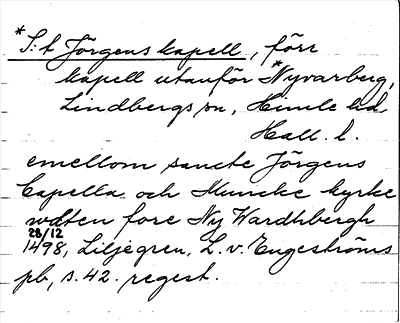 *S:t Jörgens kapell, förr
kapell utanför *Nyvarberg,
Lindbergs sn, Himle hd
Hall. l.
emellom sancte Jörgens
Capella och Muncke kyrke
wdten fore Ny Wardhbergh
28/12
1498, Liljegren, L. v. Engeströms
pb, s. 42. regest.